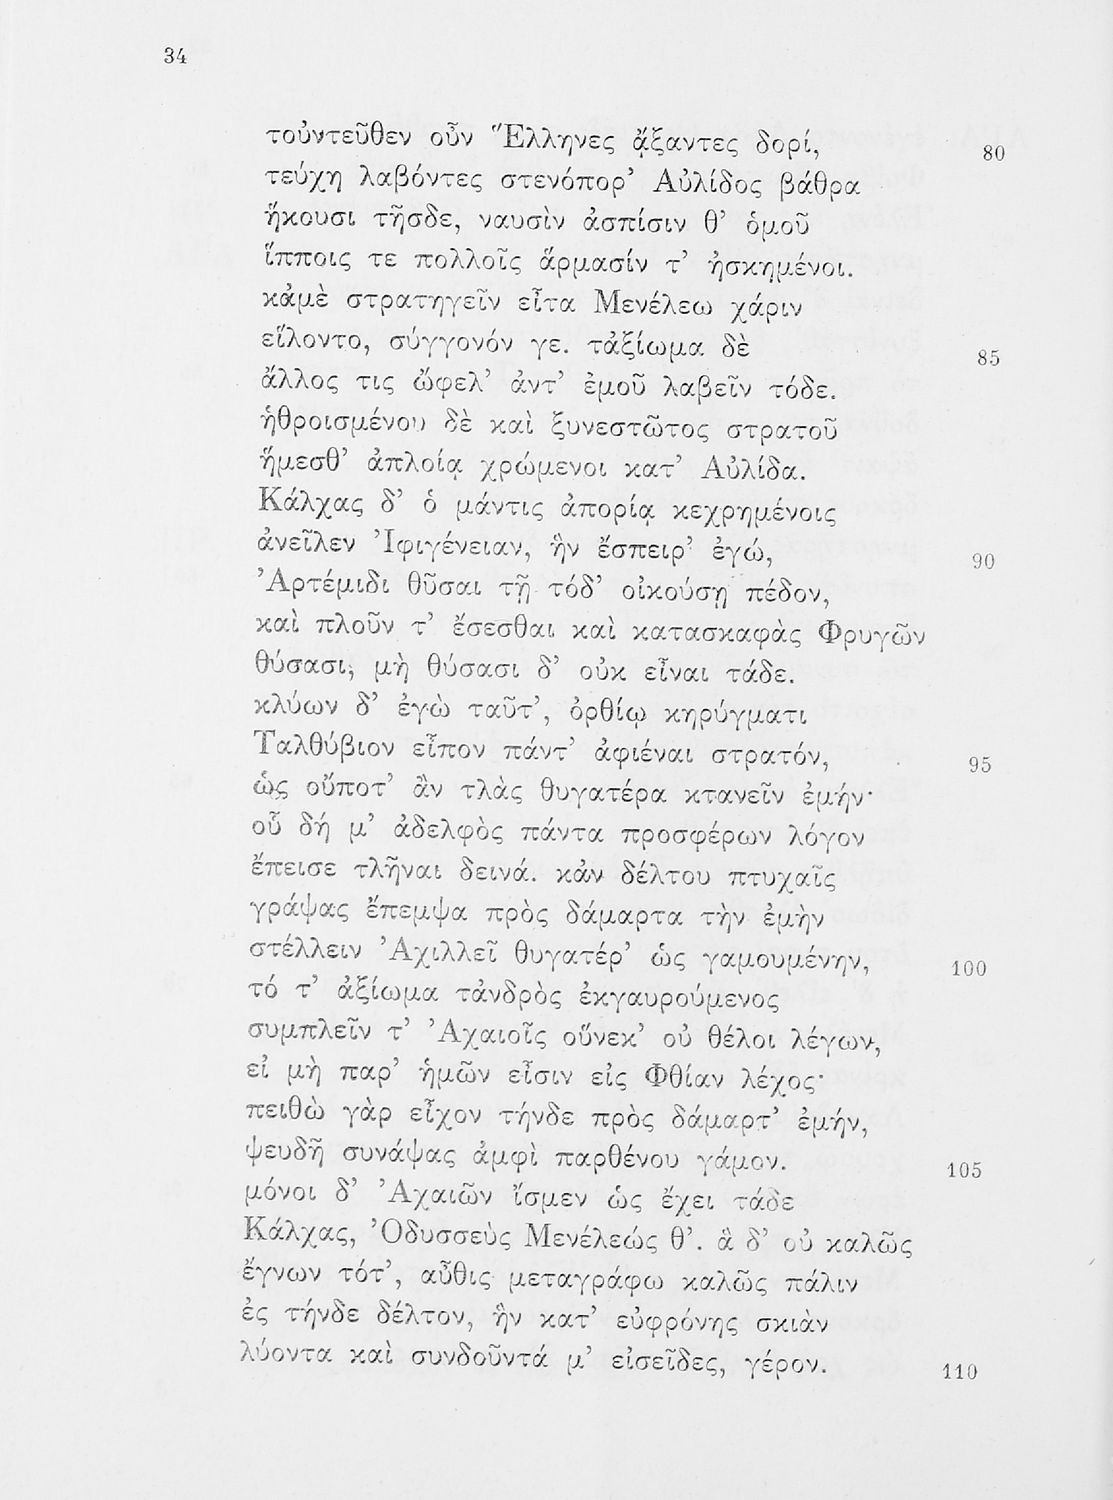 34
τοὐντεῦθεν οὖν Ἕλληνες ᾄξαντες δορί, 80
τεύχη λαβόντες στενόπορ’ Αὐλίδος βάθρα
ἥκουσι τῆσδε, ναυσὶν ἀσπίσιν θ’ ὁμοῦ
ἵπποις τε πολλοῖς ἅρμασίν τ’ ἠσκημένοι.
κἀμὲ στρατηγεῖν εἶτα Μενέλεω χάριν
εἵλοντο, σύγγονόν γε. τἀξίωμα δὲ 85
ἄλλος τις ὤφελ’ ἀντ’ ἐμοῦ λαβεῖν τόδε.
ἠθροισμένου δὲ καὶ ξυνεστῶτος στρατοῦ
ἥμεσθ’ ἀπλοίᾳ χρώμενοι κατ’ Αὐλίδα.
Κάλχας δ’ ὁ μάντις ἀπορίᾳ κεχρημένοις
ἀνεῖλεν Ἰφιγένειαν, ἣν ἔσπειρ’ ἐγώ, 90
Ἀρτέμιδι θῦσαι τῇ τόδ’ οἰκούσῃ πέδον,
καὶ πλοῦν τ’ ἔσεσθαι καὶ κατασκαφὰς Φρυγῶν
θύσασι, μὴ θύσασι δ’ οὐκ εἶναι τάδε.
κλύων δ’ ἐγὼ ταῦτ’, ὀρθίῳ κηρύγματι
Ταλθύβιον εἶπον πάντ’ ἀφιέναι στρατόν, 95
ὡς οὔποτ’ ἂν τλὰς θυγατέρα κτανεῖν ἐμήν·
οὗ δή μ’ ἀδελφὸς πάντα προσφέρων λόγον
ἔπεισε τλῆναι δεινά. κἀν δέλτου πτυχαῖς
γράψας ἔπεμψα πρὸς δάμαρτα τὴν ἐμὴν
στέλλειν Ἀχιλλεῖ θυγατέρ’ ὡς γαμουμένην, 100
τό τ’ ἀξίωμα τἀνδρὸς ἐκγαυρούμενος
συμπλεῖν τ’ Ἀχαιοῖς οὕνεκ’ οὐ θέλοι λέγων,
εἰ μὴ παρ’ ἡμῶν εἶσιν εἰς Φθίαν λέχος·
πειθὼ γὰρ εἶχον τήνδε πρὸς δάμαρτ’ ἐμήν,
ψευδῆ συνάψας ἀμφὶ παρθένου γάμον. 105
μόνοι δ’ Ἀχαιῶν ἴσμεν ὡς ἔχει τάδε
Κάλχας, Ὀδυσσεὺς Μενέλεώς θ’. ἃ δ’ οὐ καλῶς
ἔγνων τότ’, αὖθις μεταγράφω καλῶς πάλιν
ἐς τήνδε δέλτον, ἣν κατ’ εὐφρόνης σκιὰν
λύοντα καὶ συνδοῦντά μ’ εἰσεῖδες, γέρον. 110